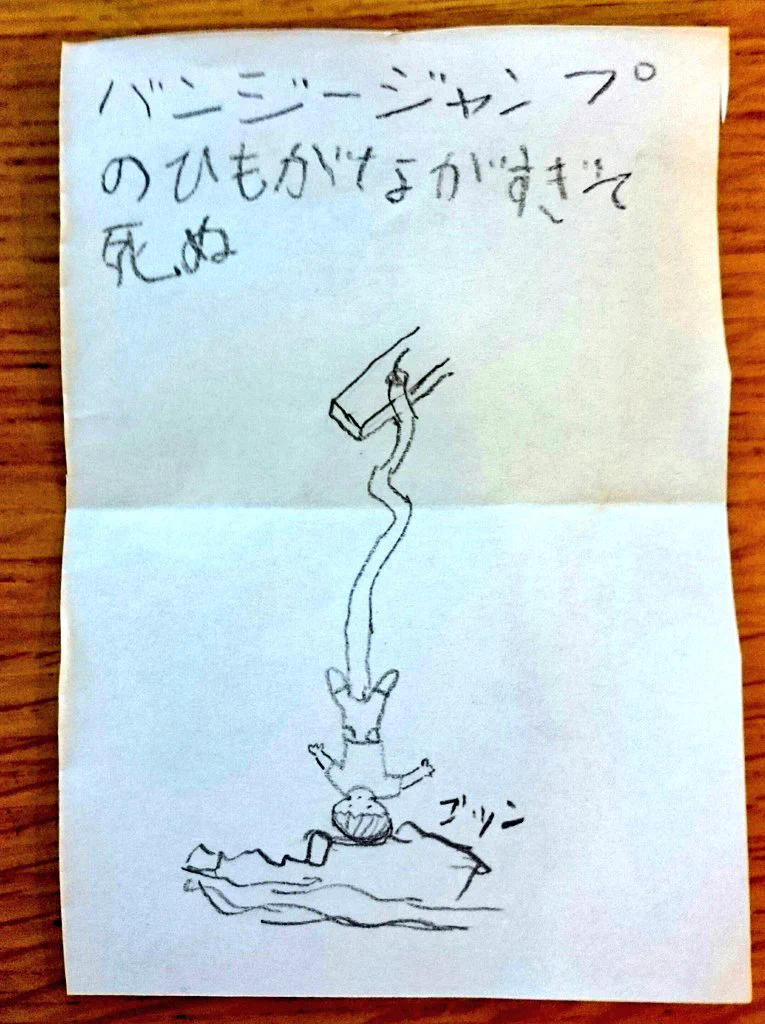 バンジージャンプ
のひもがながすぎて
死ぬ
ゴツン